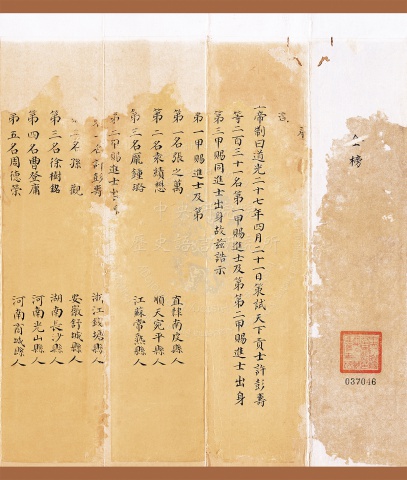 金榜
奉
皇帝制曰道光二十七年四月二十一日策試天下貢士許彭壽
等二百三十一名第一甲賜進士及第第二甲賜進士出身
第三甲賜同進士出身故茲誥示
第一甲賜進士及第
第一名張之萬 直隸南皮縣人
第二名袁績懋 順天宛平縣人
第三名龐鍾璐 江蘇常熟縣人
第二甲賜進士出身
第一名許彭壽 浙江錢塘縣人
第二名孫觀 安徽舒城縣人
第三名徐樹銘 湖南長沙縣人
第四名曹登庸 河南光山縣人
第五名周德榮 河南商城縣人
037046